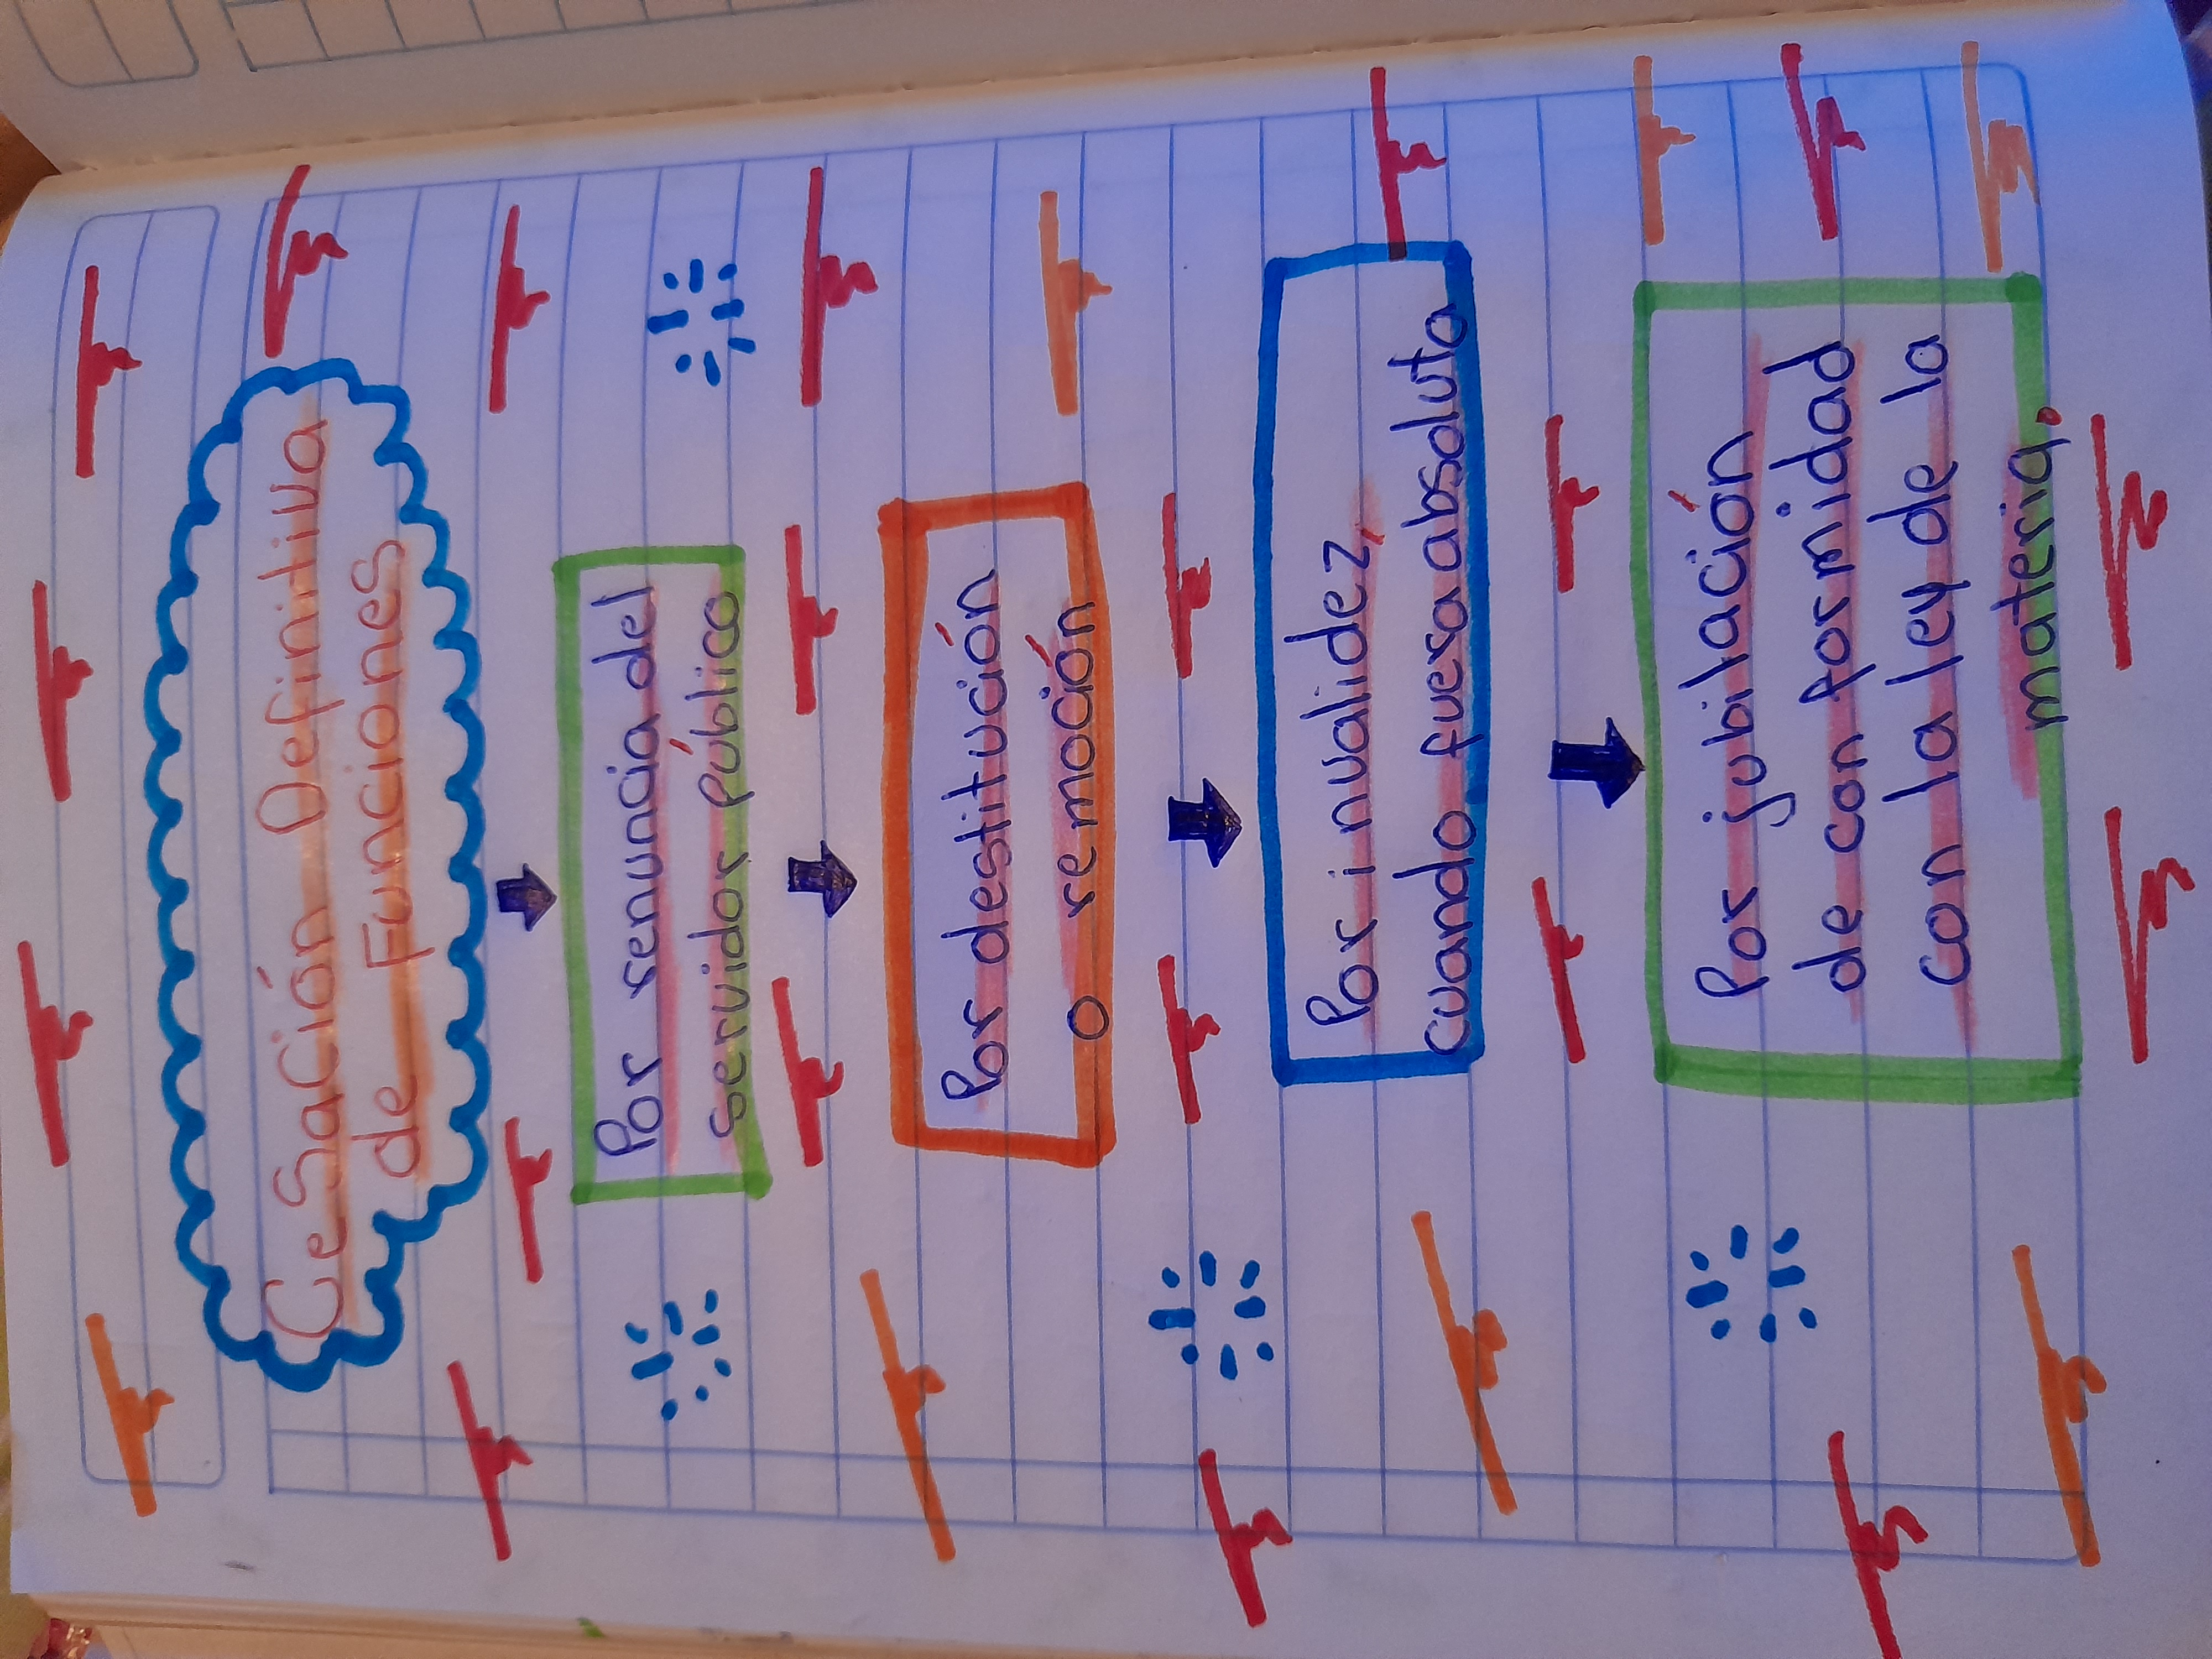 Cesación Definitiva
de Funciones
Por renuncia del
servidor público
Por destitución
o remoción
Por invalidez,
cuando fuera absoluta
Por jubilación
de conformidad
con la ley de la
materia.